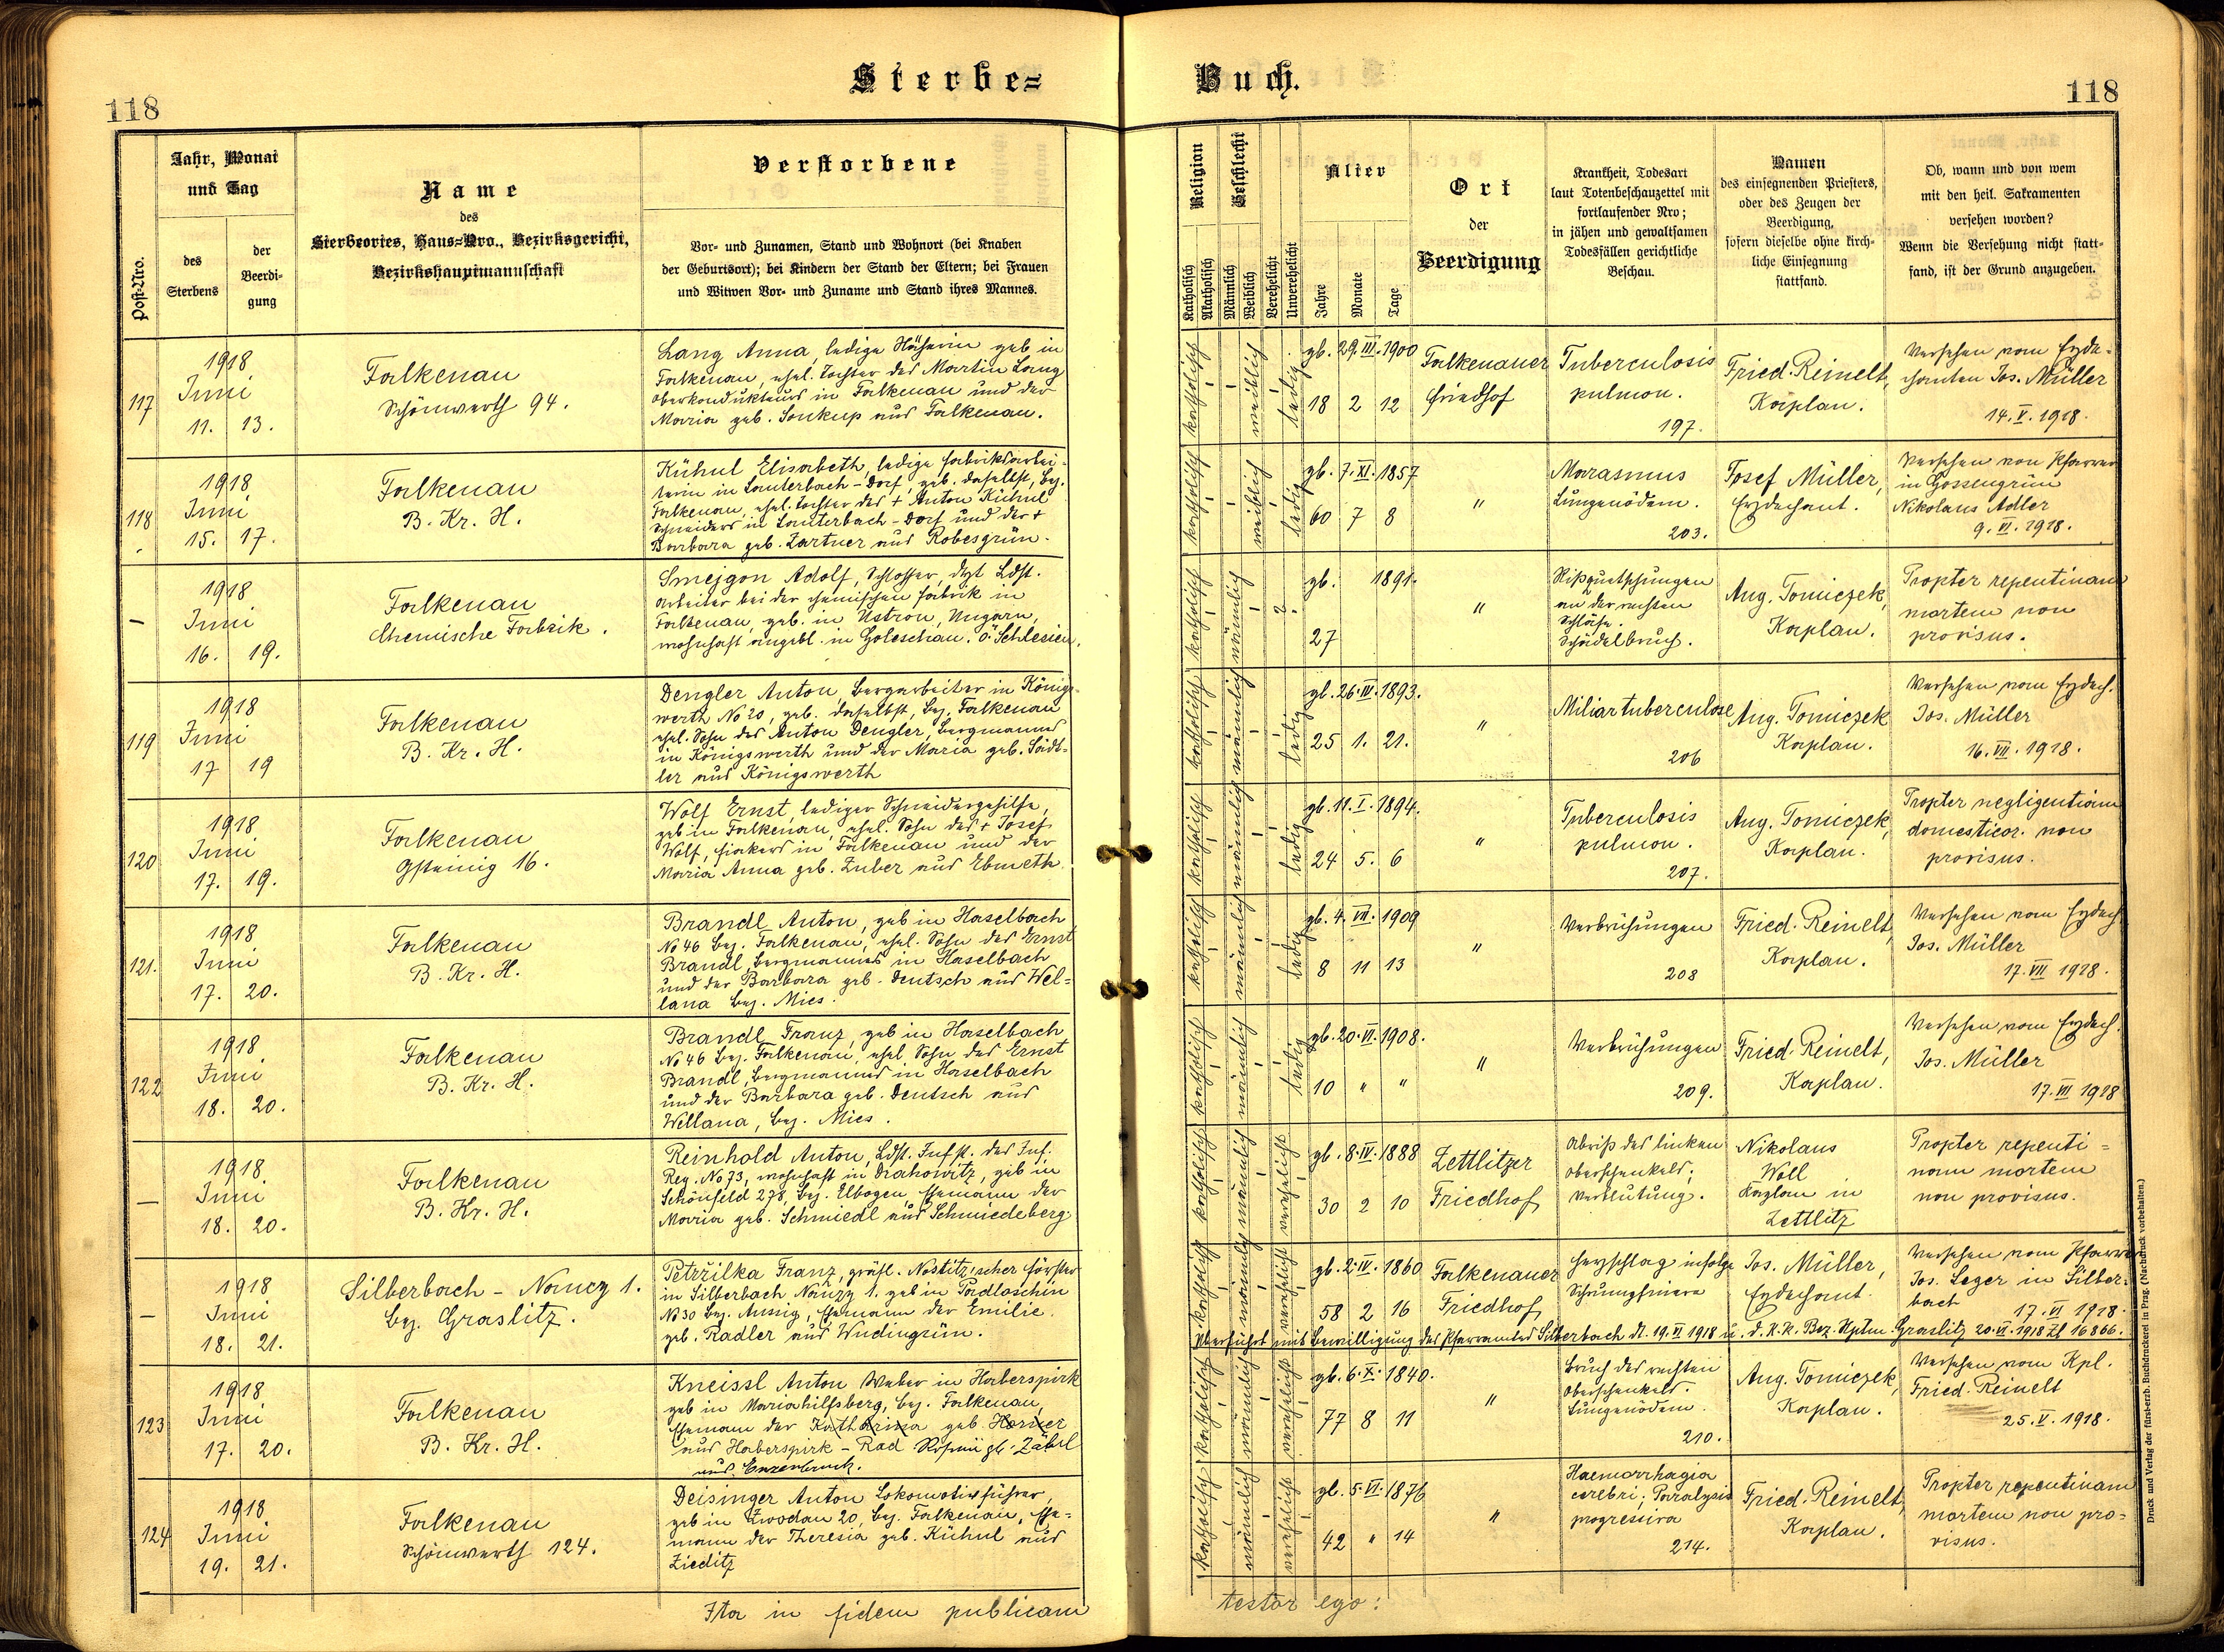 Sterbe=
Buch.
118
118
Post-Nro.
Jahr, Monat
und Tag
des
Sterbens
der
Beerdi-
gung
Name
des
Sterbeortes, Haus=Nro., Bezirksgericht,
Bezirkshauptmannschaft
Verstorbene
Vor- und Zunamen, Stand und Wohnort (bei Knaben
der Geburtsort); bei Kindern der Stand der Eltern; bei Frauen
und Witwen Vor- und Zuname und Stand ihres Mannes.
Religion
Katholisch
Akatholisch
Geschlecht
Männlich
Weiblich
Verehelicht
Unverehelicht
Alter
Jahre
Monate
Tage
Ort
der
Beerdigung
Krankheit, Todesart
laut Totenbeschauzettel mit
fortlaufender Nro;
in jähen und gewaltsamen
Todesfällen gerichtliche
Beschau.
Namen
des einsegnenden Priesters,
oder des Zeugen der
Beerdigung,
sofern dieselbe ohne kirch-
liche Einsegnung
stattfand.
Ob, wann und von wem
mit den heil. Sakramenten
versehen worden?
Wenn die Versehung nicht statt-
fand, ist der Grund anzugeben.
117
1918
Juni
11. 13.
Falkenau
Schönwerth 94.
Lang Anna, ledige Näherin geb in
Falkenau, ehel. Tochter des Martin Lang
Oberkondukteurs in Falkenau und der
Maria geb. Soukup aus Falkenau.
katholisch
weiblich
ledig
gb. 29. III. 1900
18 2 12
Falkenauer
Friedhof
Tuberculosis
pulmon.
197.
Fried. Reinelt,
Kaplan.
Versehen vom Erzde-
chanten Jos. Müller
14. V. 1918.
118
1918
Juni
15. 17.
Falkenau
B. Kr. H.
Kühnl Elisabeth, ledige Fabriksarbei-
terin in Lauterbach-Dorf geb. daselbst, Bez.
Falkenau, ehel. Tochter des + Anton Kühnl
Schneiders in Lauterbach-Dorf und der +
Barbara geb. Zartner aus Robesgrün.
katholisch
weiblich
ledig
gb. 7. XI. 1857
60 7 8
"
Marasmus
Lungenödem.
203.
Josef Müller,
Erzdechant.
Versehen von Pfarrer
in Gossengrün
Nikolaus Adler
9. VI. 1918.
–
1918
Juni
16. 19.
Falkenau
Chemische Fabrik.
Smejgon Adolf, Schlosser, dzt Ldst.
Arbeiter bei der chemischen Fabrik in
Falkenau, geb. in Ustron, Ungarn,
wohnhaft angebl. in Goleschau. ö. Schlesien.
katholisch
männlich
?
gb. 1891.
27
"
Rißquetschungen
an der rechten
Schläfe.
Schädelbruch.
Aug. Tomiczek,
Kaplan.
Propter repentinam
mortem non
provisus.
119
1918
Juni
17 19
Falkenau
B. Kr. H.
Dengler Anton, Bergarbeiter in Königs-
werth No 20, geb. daselbst, Bez. Falkenau
ehel. Sohn des Anton Dengler, Bergmanns
in Königswerth und der Maria geb. Sädt-
ler aus Königswerth
katholisch
männlich
ledig
gb. 26. IV. 1893.
25 1. 21.
"
Miliartuberculose
206
Aug. Tomiczek
Kaplan.
Versehen vom Erzdech.
Jos. Müller
16. VII. 1918.
120
1918
Juni
17. 19.
Falkenau
Gsteinig 16.
Wolf Ernst, lediger Schneidergehilfe,
geb in Falkenau, ehel. Sohn des + Josef
Wolf, Fiakers in Falkenau und der
Maria Anna geb. Zuber aus Ebmeth.
katholisch
männlich
ledig
gb. 11. I. 1894.
24 5. 6
"
Tuberculosis
pulmon.
207.
Aug. Tomiczek,
Kaplan.
Propter negligentiam
domesticor. non
provisus.
121.
1918
Juni
17. 20.
Falkenau
B. Kr. H.
Brandl Anton, geb in Haselbach
No 46 Bez. Falkenau, ehel. Sohn des Ernst
Brandl Bergmannes in Haselbach
und der Barbara geb. Deutsch aus Wel=
lana Bez. Mies.
katholisch
männlich
ledig
gb. 4. VII. 1909
8 11 13
"
Verbrühungen
208
Fried. Reinelt,
Kaplan.
Versehen vom Erzdech
Jos. Müller
17. VII 1918.
122
1918
Juni
18. 20.
Falkenau
B. Kr. H.
Brandl Franz, geb in Haselbach
No 46 Bez. Falkenau, ehel Sohn des Ernst
Brandl, Bergmannes in Haselbach
und der Barbara geb. Deutsch aus
Wellana, Bez. Mies.
katholisch
männlich
ledig
gb. 20. VI. 1908.
10 " "
"
Verbrühungen
209.
Fried. Reinelt,
Kaplan.
Versehen vom Erzdech.
Jos. Müller
17. VII 1918
–
1918
Juni
18. 20.
Falkenau
B. Kr. H.
Reinhold Anton, Ldst. Infst. des Inf.
Reg. No 73, wohnhaft in Drahowitz, geb in
Schönfeld 278, Bez. Elbogen, Ehemann der
Maria geb. Schmiedl aus Schmiedeberg.
katholisch
männlich
verehelicht
gb. 8. IV. 1888
30 2 10
Zettlitzer
Friedhof
Abriß des linken
Oberschenkels;
Verblutung.
Nikolaus
Woll
Kaplan in
Zettlitz
Propter repenti=
nam mortem
non provisus.
–
1918
Juni
18. 21.
Silberbach - Nancy 1.
Bez. Graslitz.
Petržilka Franz, gräfl. Nostitz'scher Förster
in Silberbach Nancy 1. geb in Padloschin
No 30 Bez. Aussig, Ehemann der Emilie
geb. Radler aus Wudingrün.
katholisch
männlich
verehelicht
gb. 2. IV. 1860
58 2 16
Falkenauer
Friedhof
Herzschlag infolge
Jos. Müller,
Erzdechant.
Versehen vom Pfarrer
Jos. Leger in Silber-
bach 17. VI 1918.
Überführt mit Bewilligung des Pfarramtes Silberbach dt. 19. VI 1918 u. d. K.K. Bez. Hptm. Graslitz 20. VI. 1918 Zl 16866.
123
1918
Juni
17. 20.
Falkenau
B. Kr. H.
Kneissl Anton Weber in Haberspirk
geb in Mariahilfsberg, Bez. Falkenau,
Ehemann der Katharina geb. Horner
aus Haberspirk - Rad
aus Enzenbruck.
katholisch
männlich
verehelicht
gb. 6. X. 1840.
77 8 11
"
Bruch des rechten
Oberschenkels.
Lungenödem.
210.
Aug. Tomiczek,
Kaplan.
Versehen vom Kpl.
Fried. Reinelt
25. V. 1918.
124
1918
Juni
19. 21.
Falkenau
Schönwerth 124.
Deisinger Anton Lokomotivführer,
geb in Zwodau 20, Bez. Falkenau, Ehe=
mann der Theresia geb. Kühnl aus
Zieditz
katholisch
männlich
verehelicht
gb. 5. VI. 1876
42 " 14
"
Haemorrhagia
cerebri; Paralysis
progressiva
214.
Fried. Reinelt,
Kaplan.
Propter repentinam
mortem non pro=
visus.
Ita in fidem publicam
testor ego:
Druck und Verlag der fürsterzb. Buchdruckerei in Prag. (Nachdruck vorbehalten.)